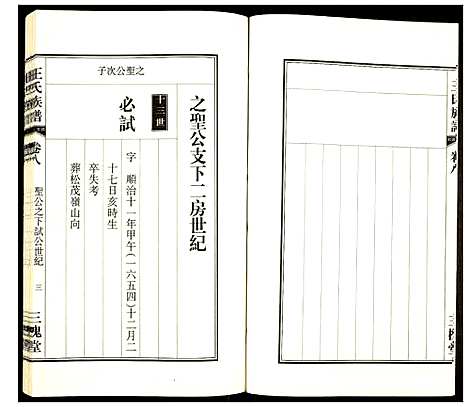 王氏族譜
卷八
聖公之下試公世紀
三
三槐堂
之聖公支下二房世紀
之聖公次子
十三世
必試
字 順治十一年甲午(一六五四)十二月二
十七日亥時生
卒失考
葬松茂嶺山向
王氏族譜
卷八
三槐堂